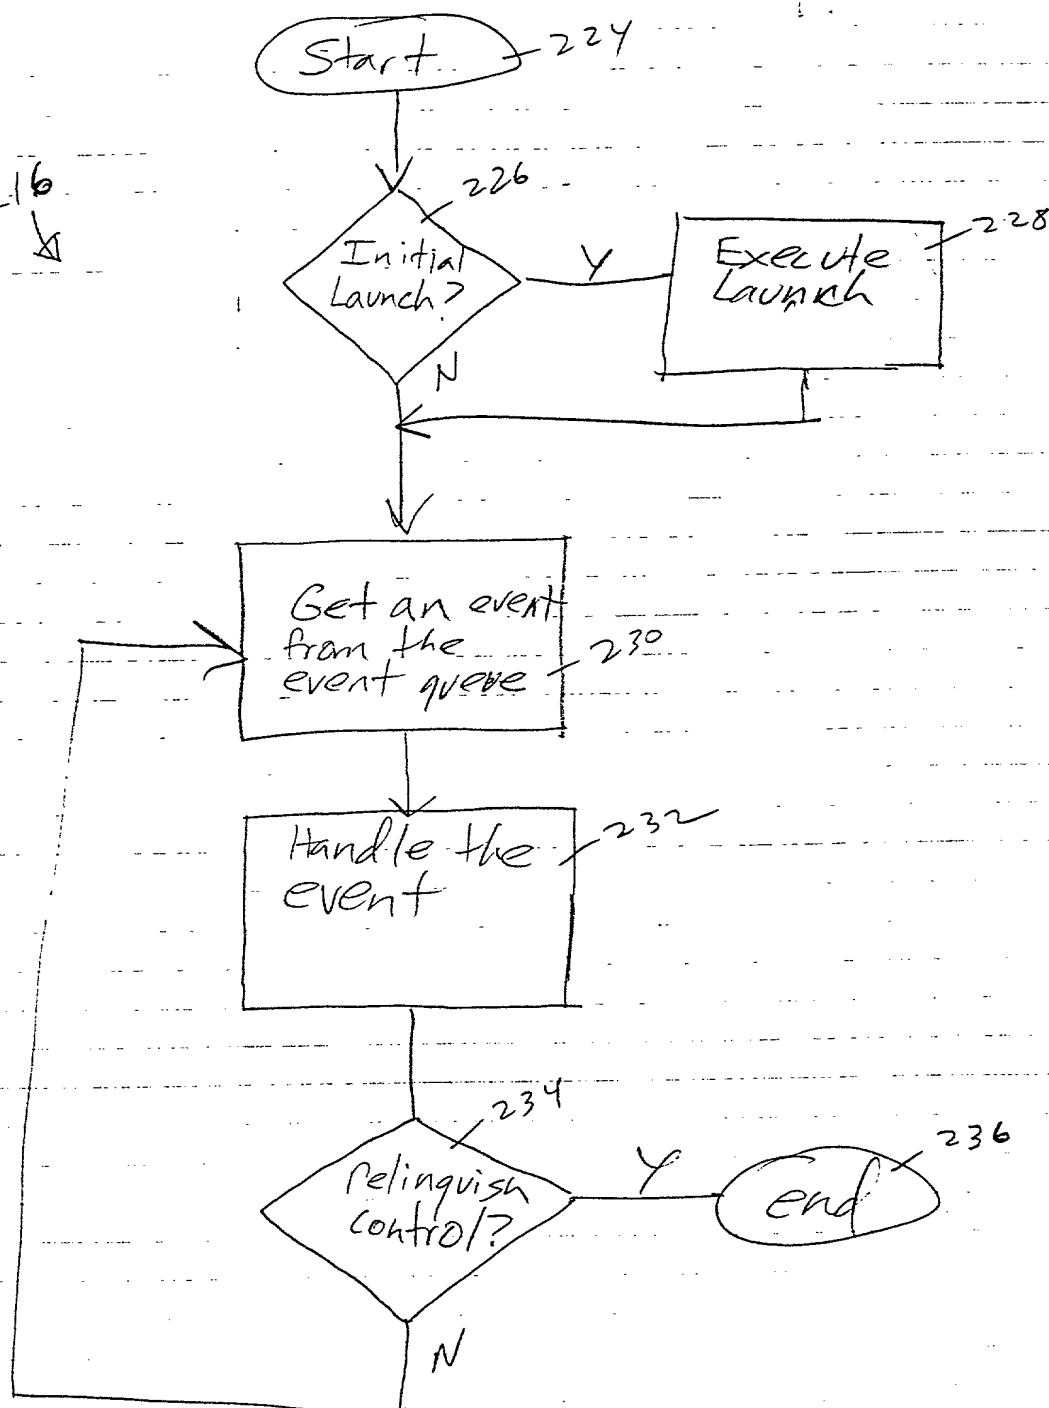 Start
224
16
226
Initial
Launch?
Y
Execute
Launch
228
N
Get an event
from the
event queue
230
Handle the
event
232
234
relinquish
control?
Y
end
236
N